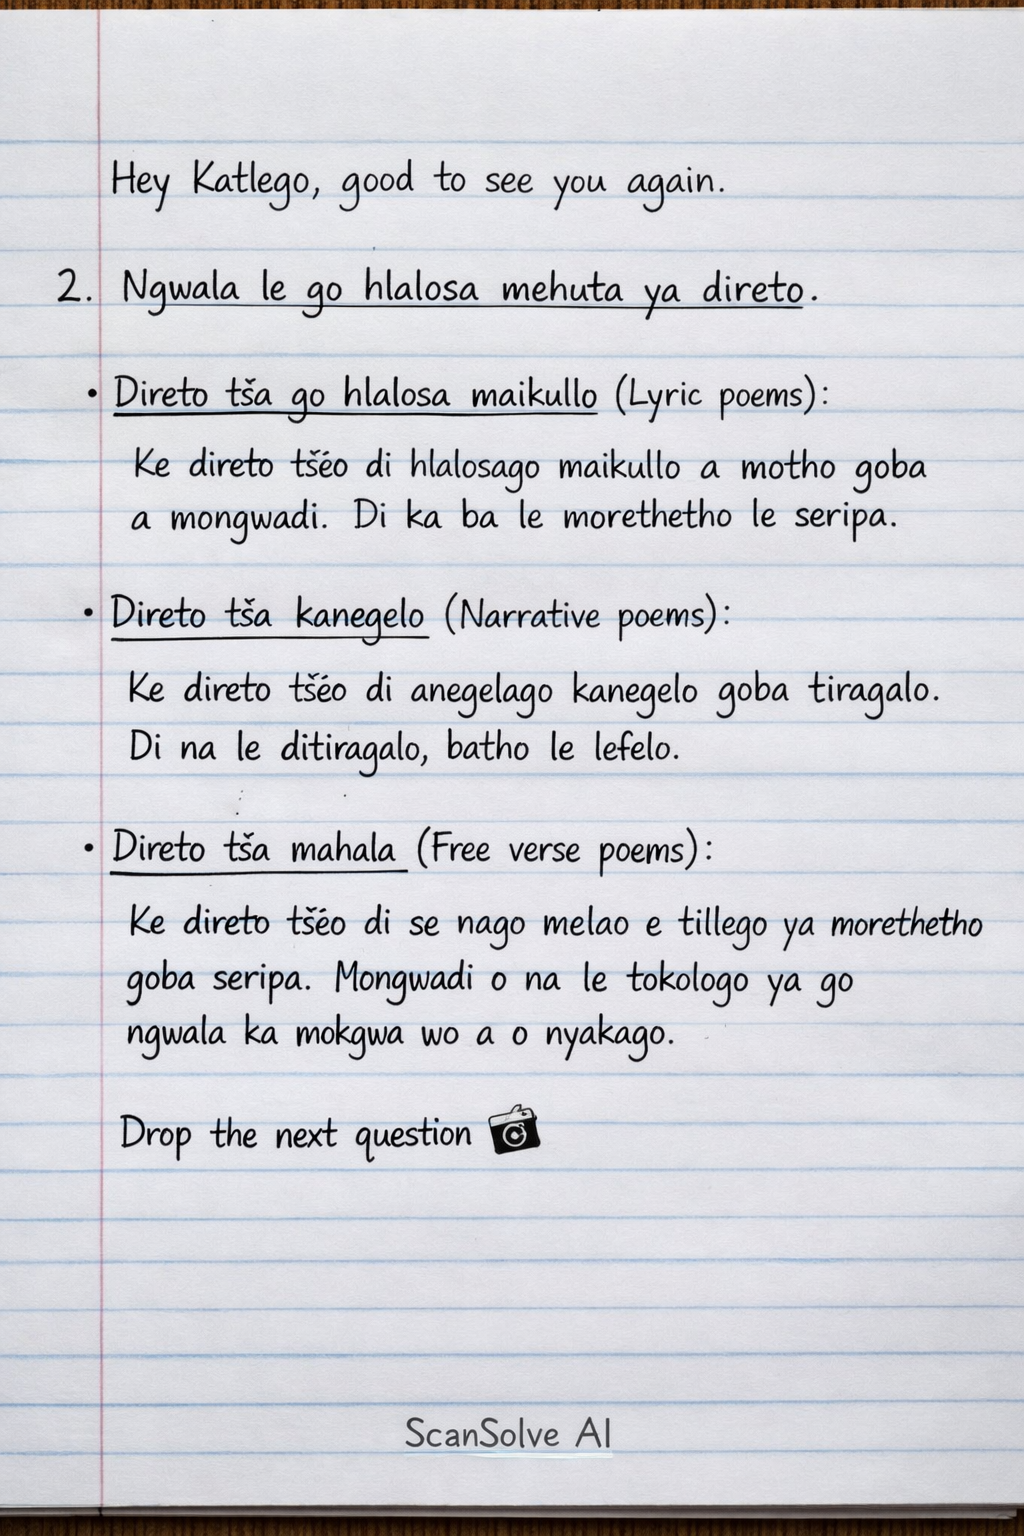 Hey Katlego, good to see you again.
2. Ngwala le go hlalosa mehuta ya direto.
• Direto tša go hlalosa maikullo (Lyric poems):
Ke direto tšéo di hlalosago maikullo a motho goba
a mongwadi. Di ka ba le morethetho le seripa.
• Direto tša kanegelo (Narrative poems):
Ke direto tšéo di anegelago kanegelo goba tiragalo.
Di na le ditiragalo, batho le lefelo.
• Direto tša mahala (Free verse poems):
Ke direto tšéo di se nago melao e tillego ya morethetho
goba seripa. Mongwadi o na le tokologo ya go
ngwala ka mokgwa wo a o nyakago.
Drop the next question
ScanSolve AI